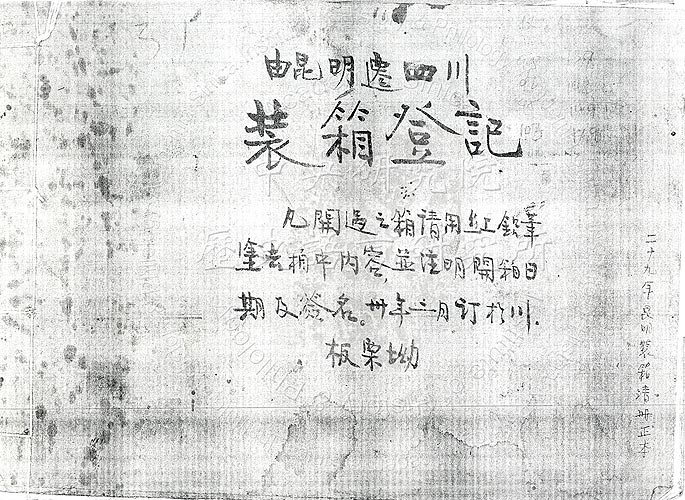 由昆明遷四川
裝箱登記
中央研究院
凡開過之箱請用紅鉛筆
塗去中內容,並注明開箱日
期及簽名。卅年三月订於川.
板栗坳
二十九年昆明裝箱清冊正本